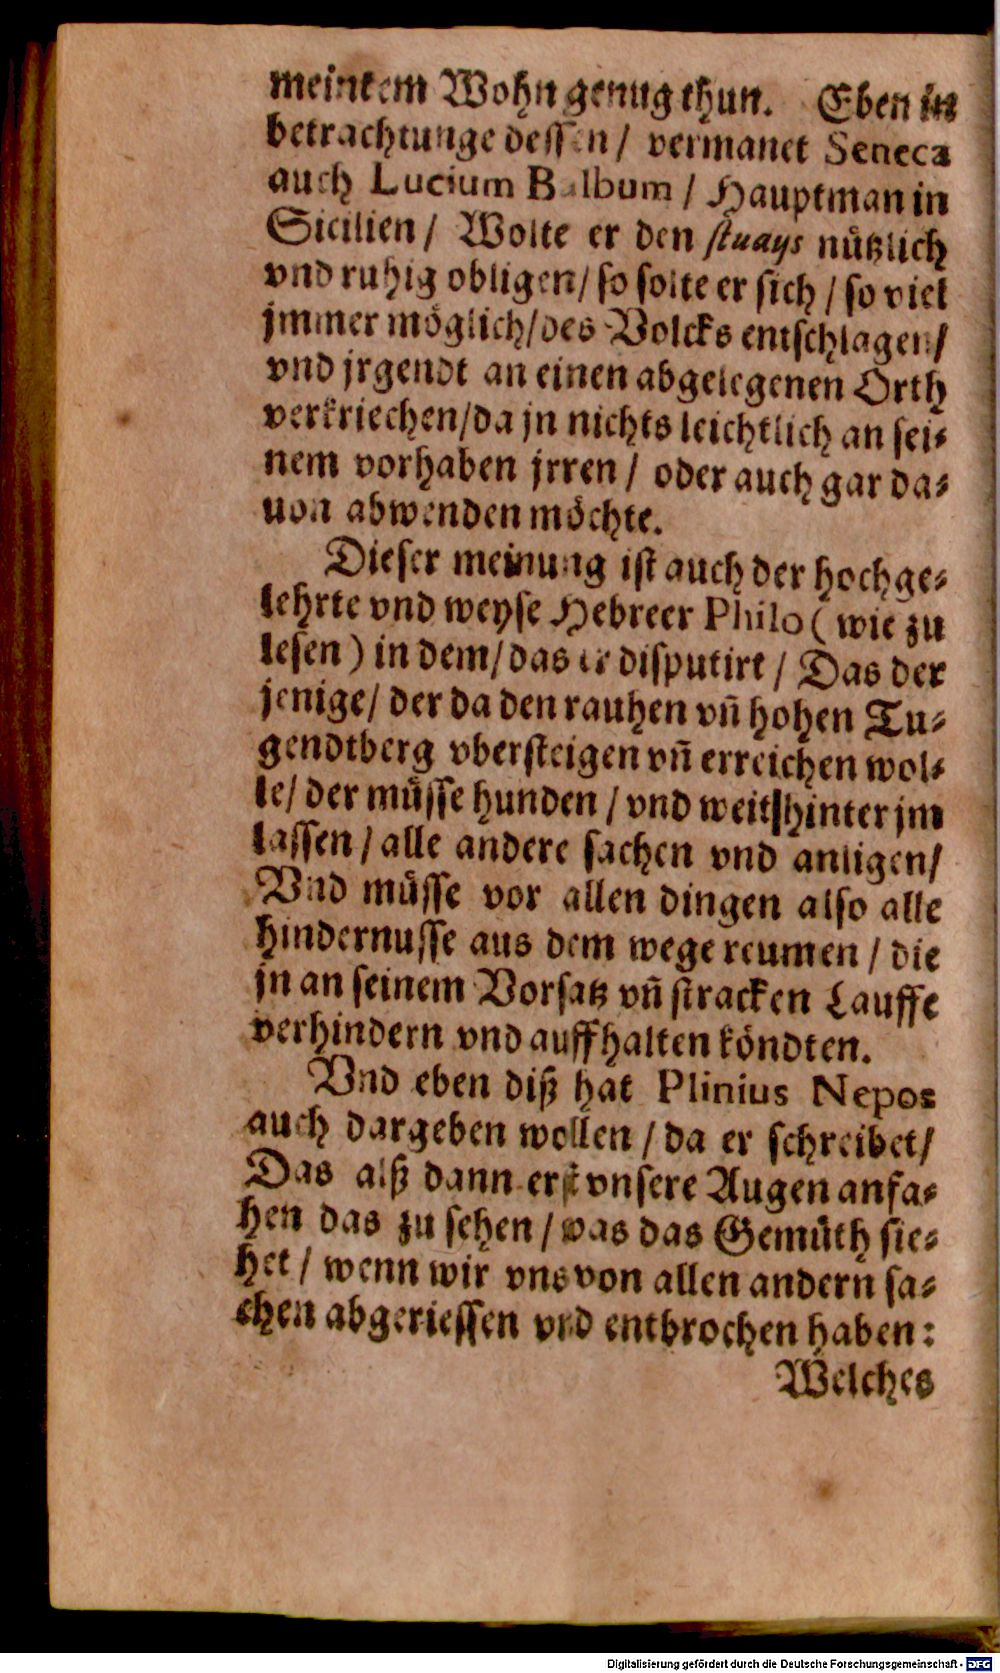 meintem Wohn genug thun. Eben in
betrachtunge dessen / vermanet Seneca
auch Lucium Balbum / Hauptman in
Sicilien / Wolte er den studys nuͤtzlich
vnd ruhig obligen / so solte er sich / so viel
jmmer moͤglich / des Volcks entschlagen /
vnd jrgendt an einen abgelegenen Orth
verkriechen / da jn nichts leichtlich an sei⸗
nem vorhaben jrren / oder auch gar da⸗
uon abwenden moͤchte.
Dieser meinung ist auch der hochge⸗
lehrte vnd weyse Hebreer Philo ( wie zu
lesen ) in dem / das er disputirt / Das der
jenige / der da den rauhen vñ hohen Tu⸗
gendtberg vbersteigen vñ erreichen wol⸗
le / der muͤsse hunden / vnd weit hinter jm
lassen / alle andere sachen vnd anligen /
Vnd muͤsse vor allen dingen also alle
hindernusse aus dem wege reumen / die
jn an seinem Vorsatz vñ stracken Lauffe
verhindern vnd auffhalten koͤndten.
Vnd eben diß hat Plinius Nepos
auch dargeben wollen / da er schreibet /
Das alß dann erst vnsere Augen anfa⸗
hen das zu sehen / was das Gemuͤth sie⸗
het / wenn wir vns von allen andern sa⸗
chen abgeriessen vnd entbrochen haben :
Welches
Digitalisierung gefördert durch die Deutsche Forschungsgemeinschaft - DFG